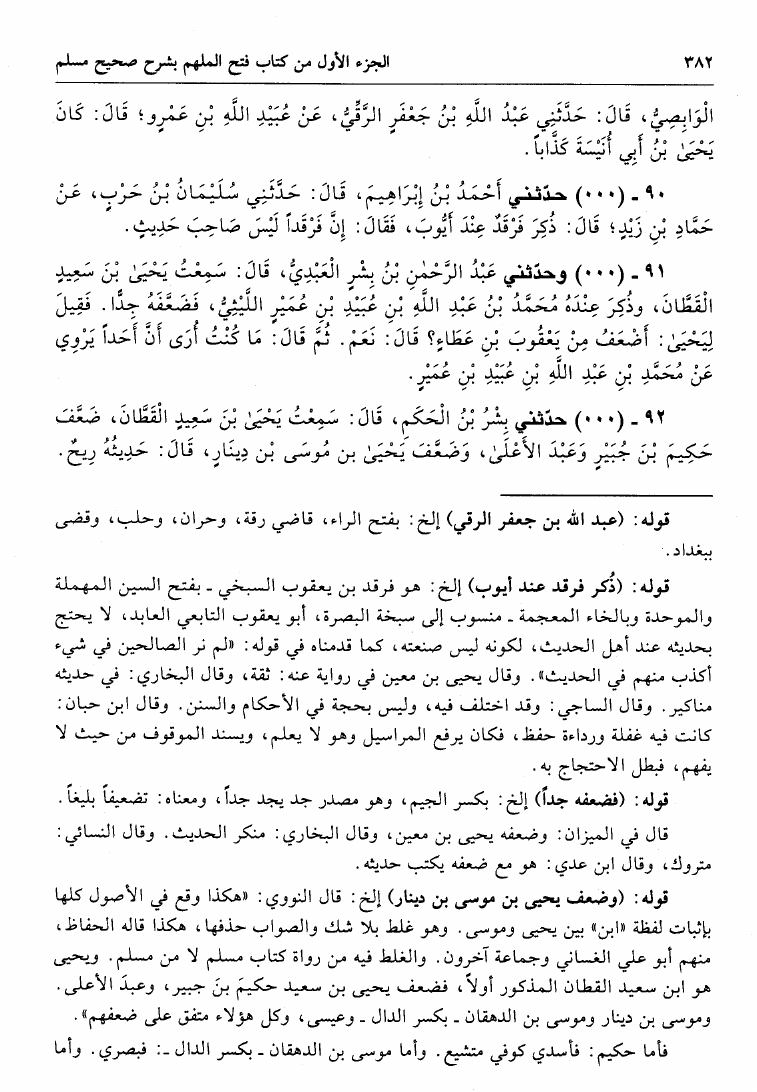 ٣٨٢ الجزء الأول من كتاب فتح الملهم بشرح صحيح مسلم
الْوَابِصِيُّ، قَالَ: حَدَّثَنِي عَبْدُ اللَّهِ بْنُ جَعْفَرٍ الرَّقِّيُّ، عَنْ عُبَيْدِ اللَّهِ بْنِ عَمْرٍو؛ قَالَ: كَانَ
يَحْيَىٰ بْنُ أَبِي أُنَيْسَةَ كَذَّاباً.
٩٠ ـ (٠٠٠) حدّثني أَحْمَدُ بْنُ إِبْرَاهِيمَ، قَالَ: حَدَّثَنِي سُلَيْمَانُ بْنُ حَرْبٍ، عَنْ
حَمَّادِ بْنِ زَيْدٍ؛ قَالَ: ذُكِرَ فَرْقَدٌ عِنْدَ أَيُّوبَ، فَقَالَ: إِنَّ فَرْقَداً لَيْسَ صَاحِبَ حَدِيثٍ.
٩١ ـ (٠٠٠) وحدّثني عَبْدُ الرَّحْمٰنِ بْنُ بِشْرٍ الْعَبْدِيُّ، قَالَ: سَمِعْتُ يَحْيَىٰ بْنَ سَعِيدٍ
الْقَطَّانَ، وَذُكِرَ عِنْدَهُ مُحَمَّدُ بْنُ عَبْدِ اللَّهِ بْنِ عُبَيْدِ بْنِ عُمَيْرٍ اللَّيْثِيُّ، فَضَعَّفَهُ جِدًّا. فَقِيلَ
لِيَحْيَىٰ: أَضْعَفُ مِنْ يَعْقُوبَ بْنِ عَطَاءٍ؟ قَالَ: نَعَمْ. ثُمَّ قَالَ: مَا كُنْتُ أُرَى أَنَّ أَحَداً يَرْوِي
عَنْ مُحَمَّدِ بْنِ عَبْدِ اللَّهِ بْنِ عُبَيْدِ بْنِ عُمَيْرٍ.
٩٢ ـ (٠٠٠) حدّثني بِشْرُ بْنُ الْحَكَمِ، قَالَ: سَمِعْتُ يَحْيَىٰ بْنَ سَعِيدٍ الْقَطَّانَ، ضَعَّفَ
حَكِيمَ بْنَ جُبَيْرٍ وَعَبْدَ الأَعْلَىٰ، وَضَعَّفَ يَحْيَىٰ بن مُوسَى بْنِ دِينَارٍ، قَالَ: حَدِيثُهُ رِيحٌ.
قوله: (عبد الله بن جعفر الرقي) إلخ: بفتح الراء، قاضي رقة، وحران، وحلب، وقضى
ببغداد.
قوله: (ذُكر فرقد عند أيوب) إلخ: هو فرقد بن يعقوب السبخي ـ بفتح السين المهملة
والموحدة وبالخاء المعجمة ـ منسوب إلى سبخة البصرة، أبو يعقوب التابعي العابد، لا يحتج
بحديثه عند أهل الحديث، لكونه ليس صنعته، كما قدمناه في قوله: «لم نر الصالحين في شيء
أكذب منهم في الحديث». وقال يحيى بن معين في رواية عنه: ثقة، وقال البخاري: في حديثه
مناكير. وقال الساجي: وقد اختلف فيه، وليس بحجة في الأحكام والسنن. وقال ابن حبان:
كانت فيه غفلة ورداءة حفظ، فكان يرفع المراسيل وهو لا يعلم، ويسند الموقوف من حيث لا
يفهم، فبطل الاحتجاج به.
قوله: (فضعفه جداً) إلخ: بكسر الجيم، وهو مصدر جد يجد جداً، ومعناه: تضعيفاً بليغاً.
قال في الميزان: وضعفه يحيى بن معين، وقال البخاري: منكر الحديث. وقال النسائي:
متروك، وقال ابن عدي: هو مع ضعفه يكتب حديثه.
قوله: (وضعف يحيى بن موسى بن دينار) إلخ: قال النووي: «هكذا وقع في الأصول كلها
بإثبات لفظة «ابن» بين يحيى وموسى. وهو غلط بلا شك والصواب حذفها، هكذا قاله الحفاظ،
منهم أبو علي الغساني وجماعة آخرون. والغلط فيه من رواة كتاب مسلم لا من مسلم. ويحيى
هو ابن سعيد القطان المذكور أولاً، فضعف يحيى بن سعيد حكيمَ بنَ جبير، وعبدَ الأعلى.
وموسى بن دينار وموسى بن الدهقان ـ بكسر الدال ـ وعيسى، وكل هؤلاء متفق على ضعفهم».
فأما حكيم: فأسدي كوفي متشيع. وأما موسى بن الدهقان ـ بكسر الدال ـ: فبصري. وأما